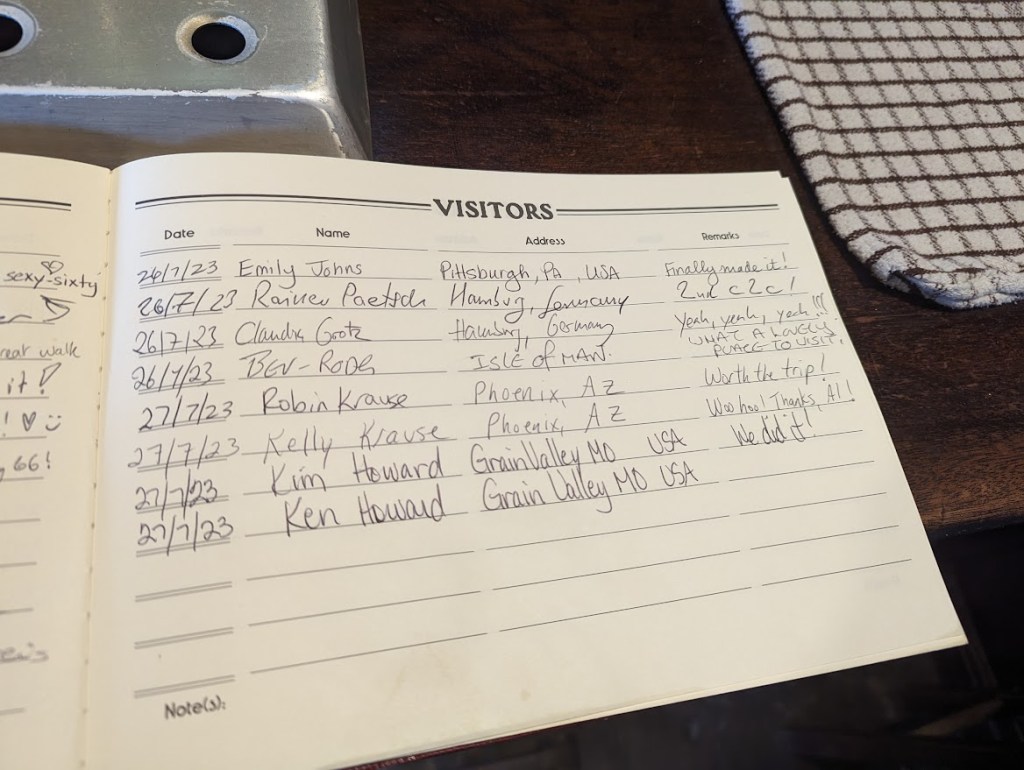 sexy-sixty
walk
it!
!
66!
VISITORS
Date Name Address Remarks
26/7/23 Emily Johns Pittsburgh, PA, USA Finally made it!
26/7/23 Rainer Paetsch Hamburg, Germany 2nd c2c!
26/7/23 Claudia Hamburg, Germany Yeah, yeah, yeah!!!
26/7/23 BEV - ISLE OF MAN. WHAT A LOVELY
PLACE TO VISIT.
27/7/23 Robin Krause Phoenix, AZ Worth the trip!
27/7/23 Kelly Krause Phoenix, AZ Woo hoo! Thanks, Al!
27/7/23 Kim Howard Grain Valley MO USA We did it!
27/7/23 Ken Howard Grain Valley MO USA
Note(s):